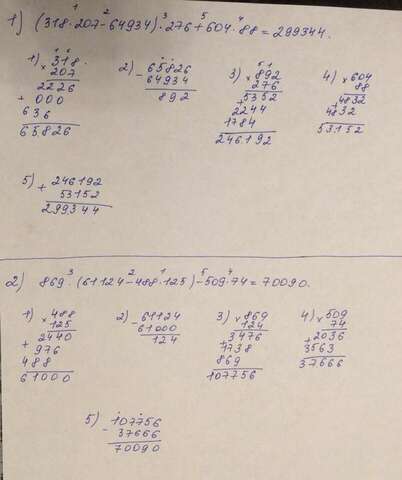 1) (318·207-64934)·276+604·88=299344.
1) × 318
207
2226
+ 000
636
65826
2) - 65826
64934
892
3) × 892
276
5352
+ 2244
1784
246192
4) × 604
88
+ 4832
4832
53152
5) + 246192
53152
299344
2) 869·(61124-488·125)-509·74=70090.
1) × 488
125
2440
+ 976
488
61000
2) - 61124
61000
124
3) × 869
124
+ 3476
1738
869
107756
4) × 509
74
+ 2036
3563
37666
5) - 107756
37666
70090